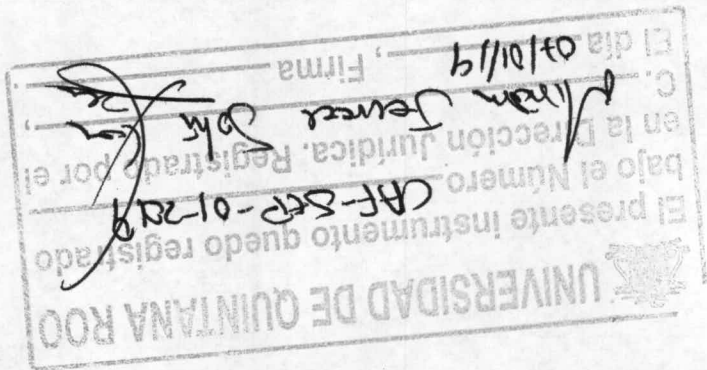 UNIVERSIDAD DE QUINTANA ROO
El presente instrumento quedo registrado
bajo el Número CAF-SEP-01-2019
en la Dirección Jurídica. Registrado por el
C. Miriam
El día 07/01/19, Firma